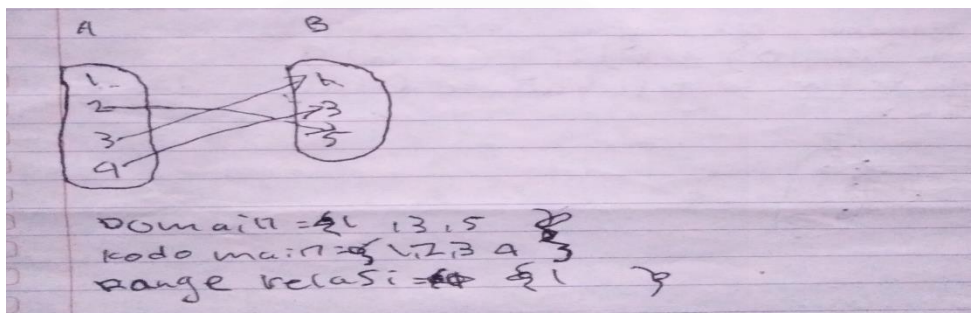 A B
1 1
2 3
3 5
4
Domain = {1, 3, 5 }
Kodo main = { 1, 2, 3 4 }
Range relasi = {1 }